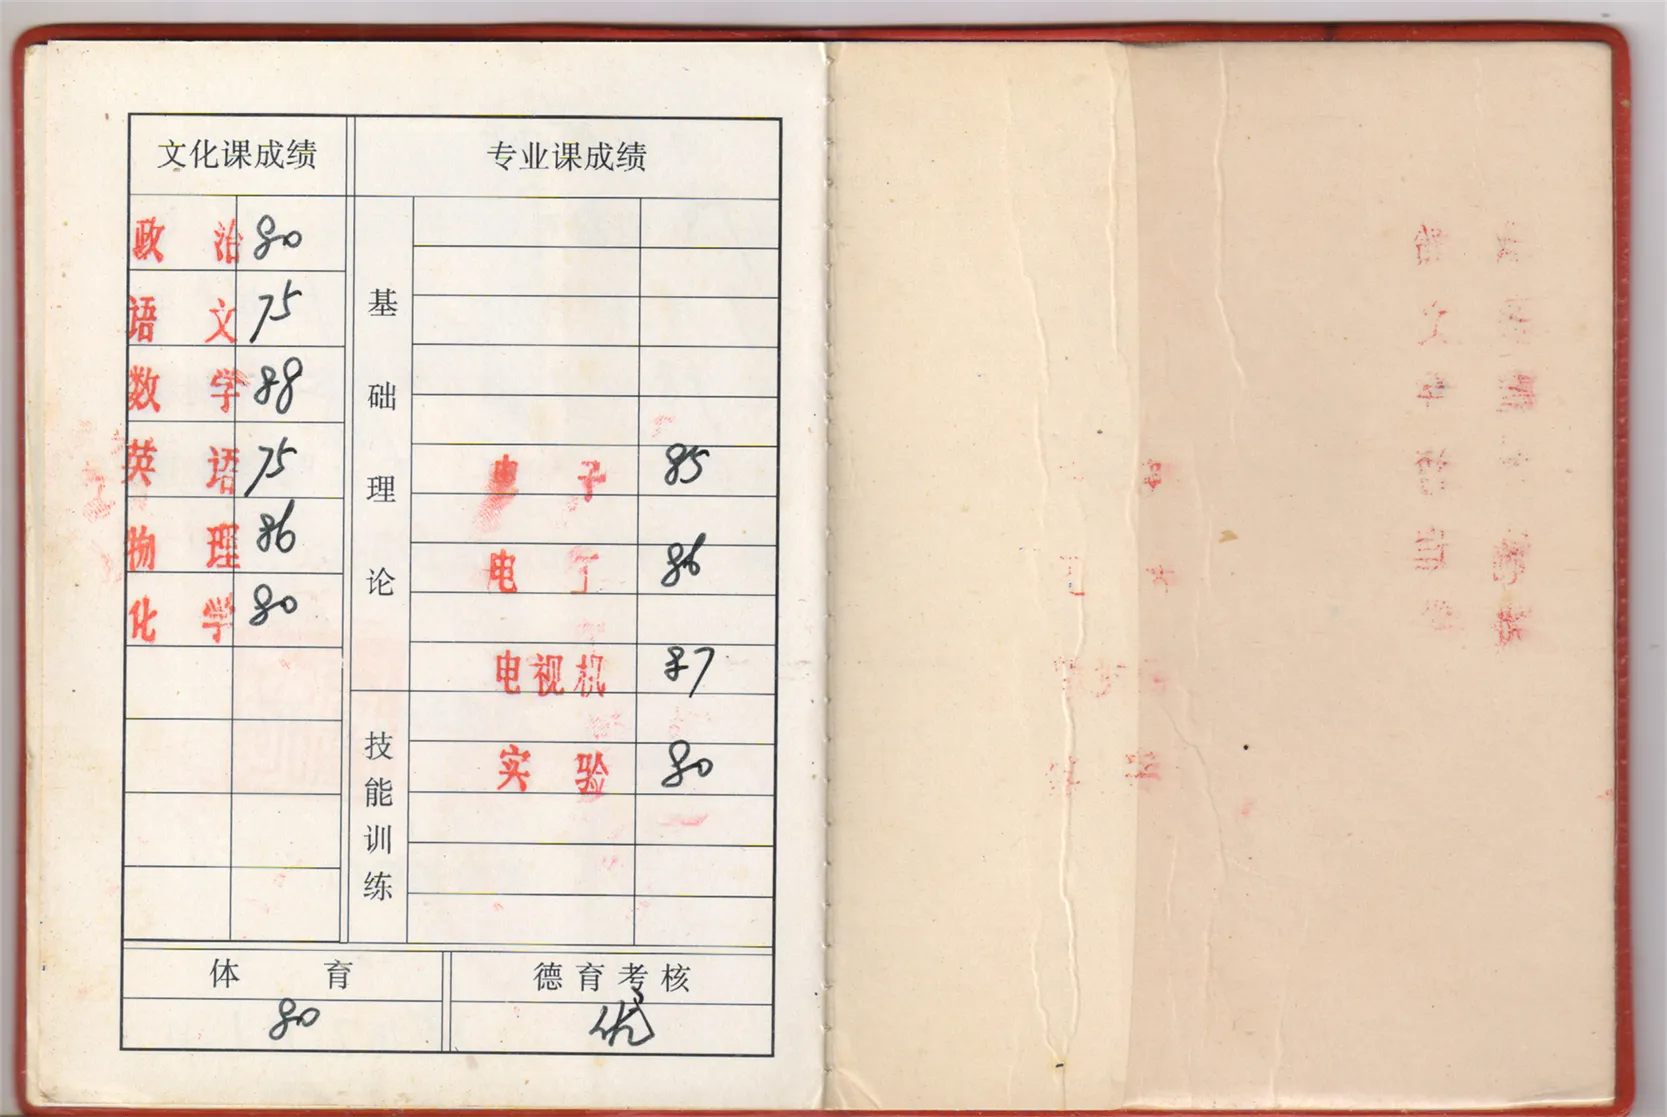 文化课成绩 专业课成绩
政治 80
语文 75
数学 88
英语 75
物理 86
化学 80
基础理论
电子 85
电丁 86
电视机 87
技能训练
实验 80
体育 德育考核
80 优